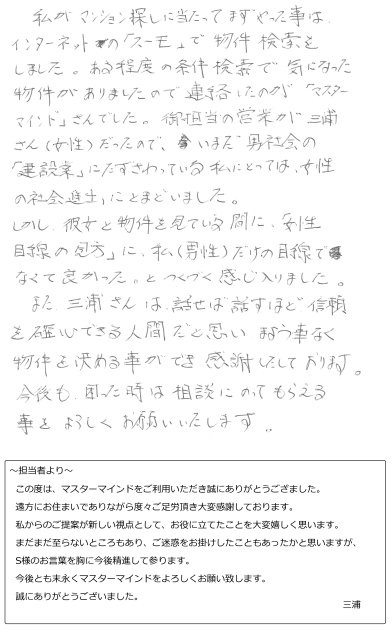 私がマンション探しに当たってまずやった事は、
インターネットの「スーモ」で物件検索を
しました。ある程度の条件検索で気になった
物件がありましたので連絡したのが「マスター
マインド」さんでした。御担当の営業が三浦
さん(女性)だったので、いまだ男社会の
「建設業」にたずさわっている私にとっては、女性
の社会進出にとまどいました。
しかし、彼女と物件を見ている間に、「女性
目線の見方」に、私(男性)だけの目線で
なくて良かった。とつくづく感じ入りました。
また、三浦さんは、話せば話すほど信頼
を確心できる人間だと思い まよう事なく
物件を決める事ができ感謝しております。
今後も、困った時は相談にのってもらえる
事をよろしくお願いいたします。
～担当者より～
この度は、マスターマインドをご利用いただき誠にありがとうございました。
遠方にお住まいでありながら度々ご足労頂き大変感謝しております。
私からのご提案が新しい視点として、お役に立てたことを大変嬉しく思います。
まだまだ至らないところもあり、ご迷惑をお掛けしたこともあったかと思いますが、
S様のお言葉を胸に今後精進して参ります。
今後とも末永くマスターマインドをよろしくお願い致します。
誠にありがとうございました。
三浦